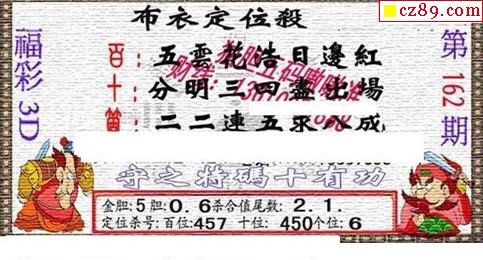 cz89.com
布衣定位殺
福彩3D
第162期
百: 五雲花浩日邊紅
十: 分明三四盡出場
箇: 二二連五來六成
守之将碼十有功
金胆:5胆:0.6杀合值尾数:2.1.
定位杀号:百位:457 十位:450个位:6